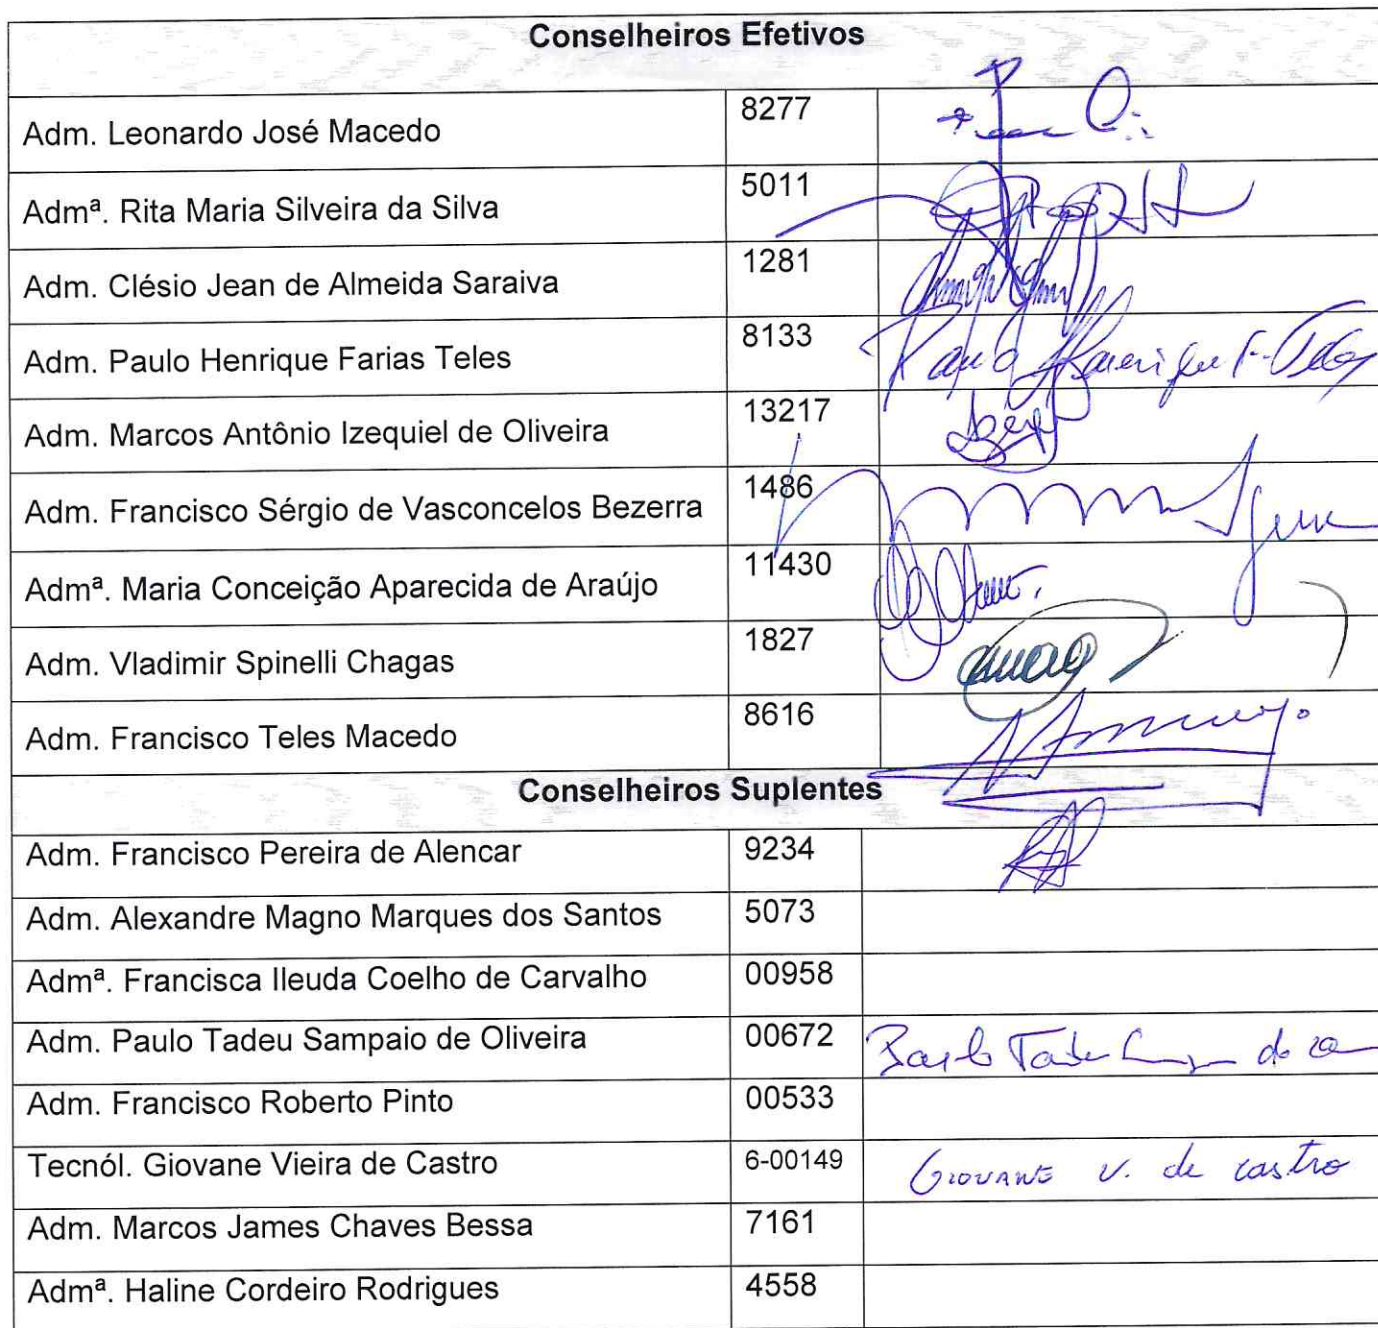 Conselheiros Efetivos
Adm. Leonardo José Macedo 8277
Admª. Rita Maria Silveira da Silva 5011
Adm. Clésio Jean de Almeida Saraiva 1281
Adm. Paulo Henrique Farias Teles 8133 Paulo Henrique F. Teles
Adm. Marcos Antônio Izequiel de Oliveira 13217
Adm. Francisco Sérgio de Vasconcelos Bezerra 1486
Admª. Maria Conceição Aparecida de Araújo 11430
Adm. Vladimir Spinelli Chagas 1827
Adm. Francisco Teles Macedo 8616
Conselheiros Suplentes
Adm. Francisco Pereira de Alencar 9234
Adm. Alexandre Magno Marques dos Santos 5073
Admª. Francisca Ileuda Coelho de Carvalho 00958
Adm. Paulo Tadeu Sampaio de Oliveira 00672 Paulo Tadeu
Adm. Francisco Roberto Pinto 00533
Tecnól. Giovane Vieira de Castro 6-00149 Giovane V. de Castro
Adm. Marcos James Chaves Bessa 7161
Admª. Haline Cordeiro Rodrigues 4558